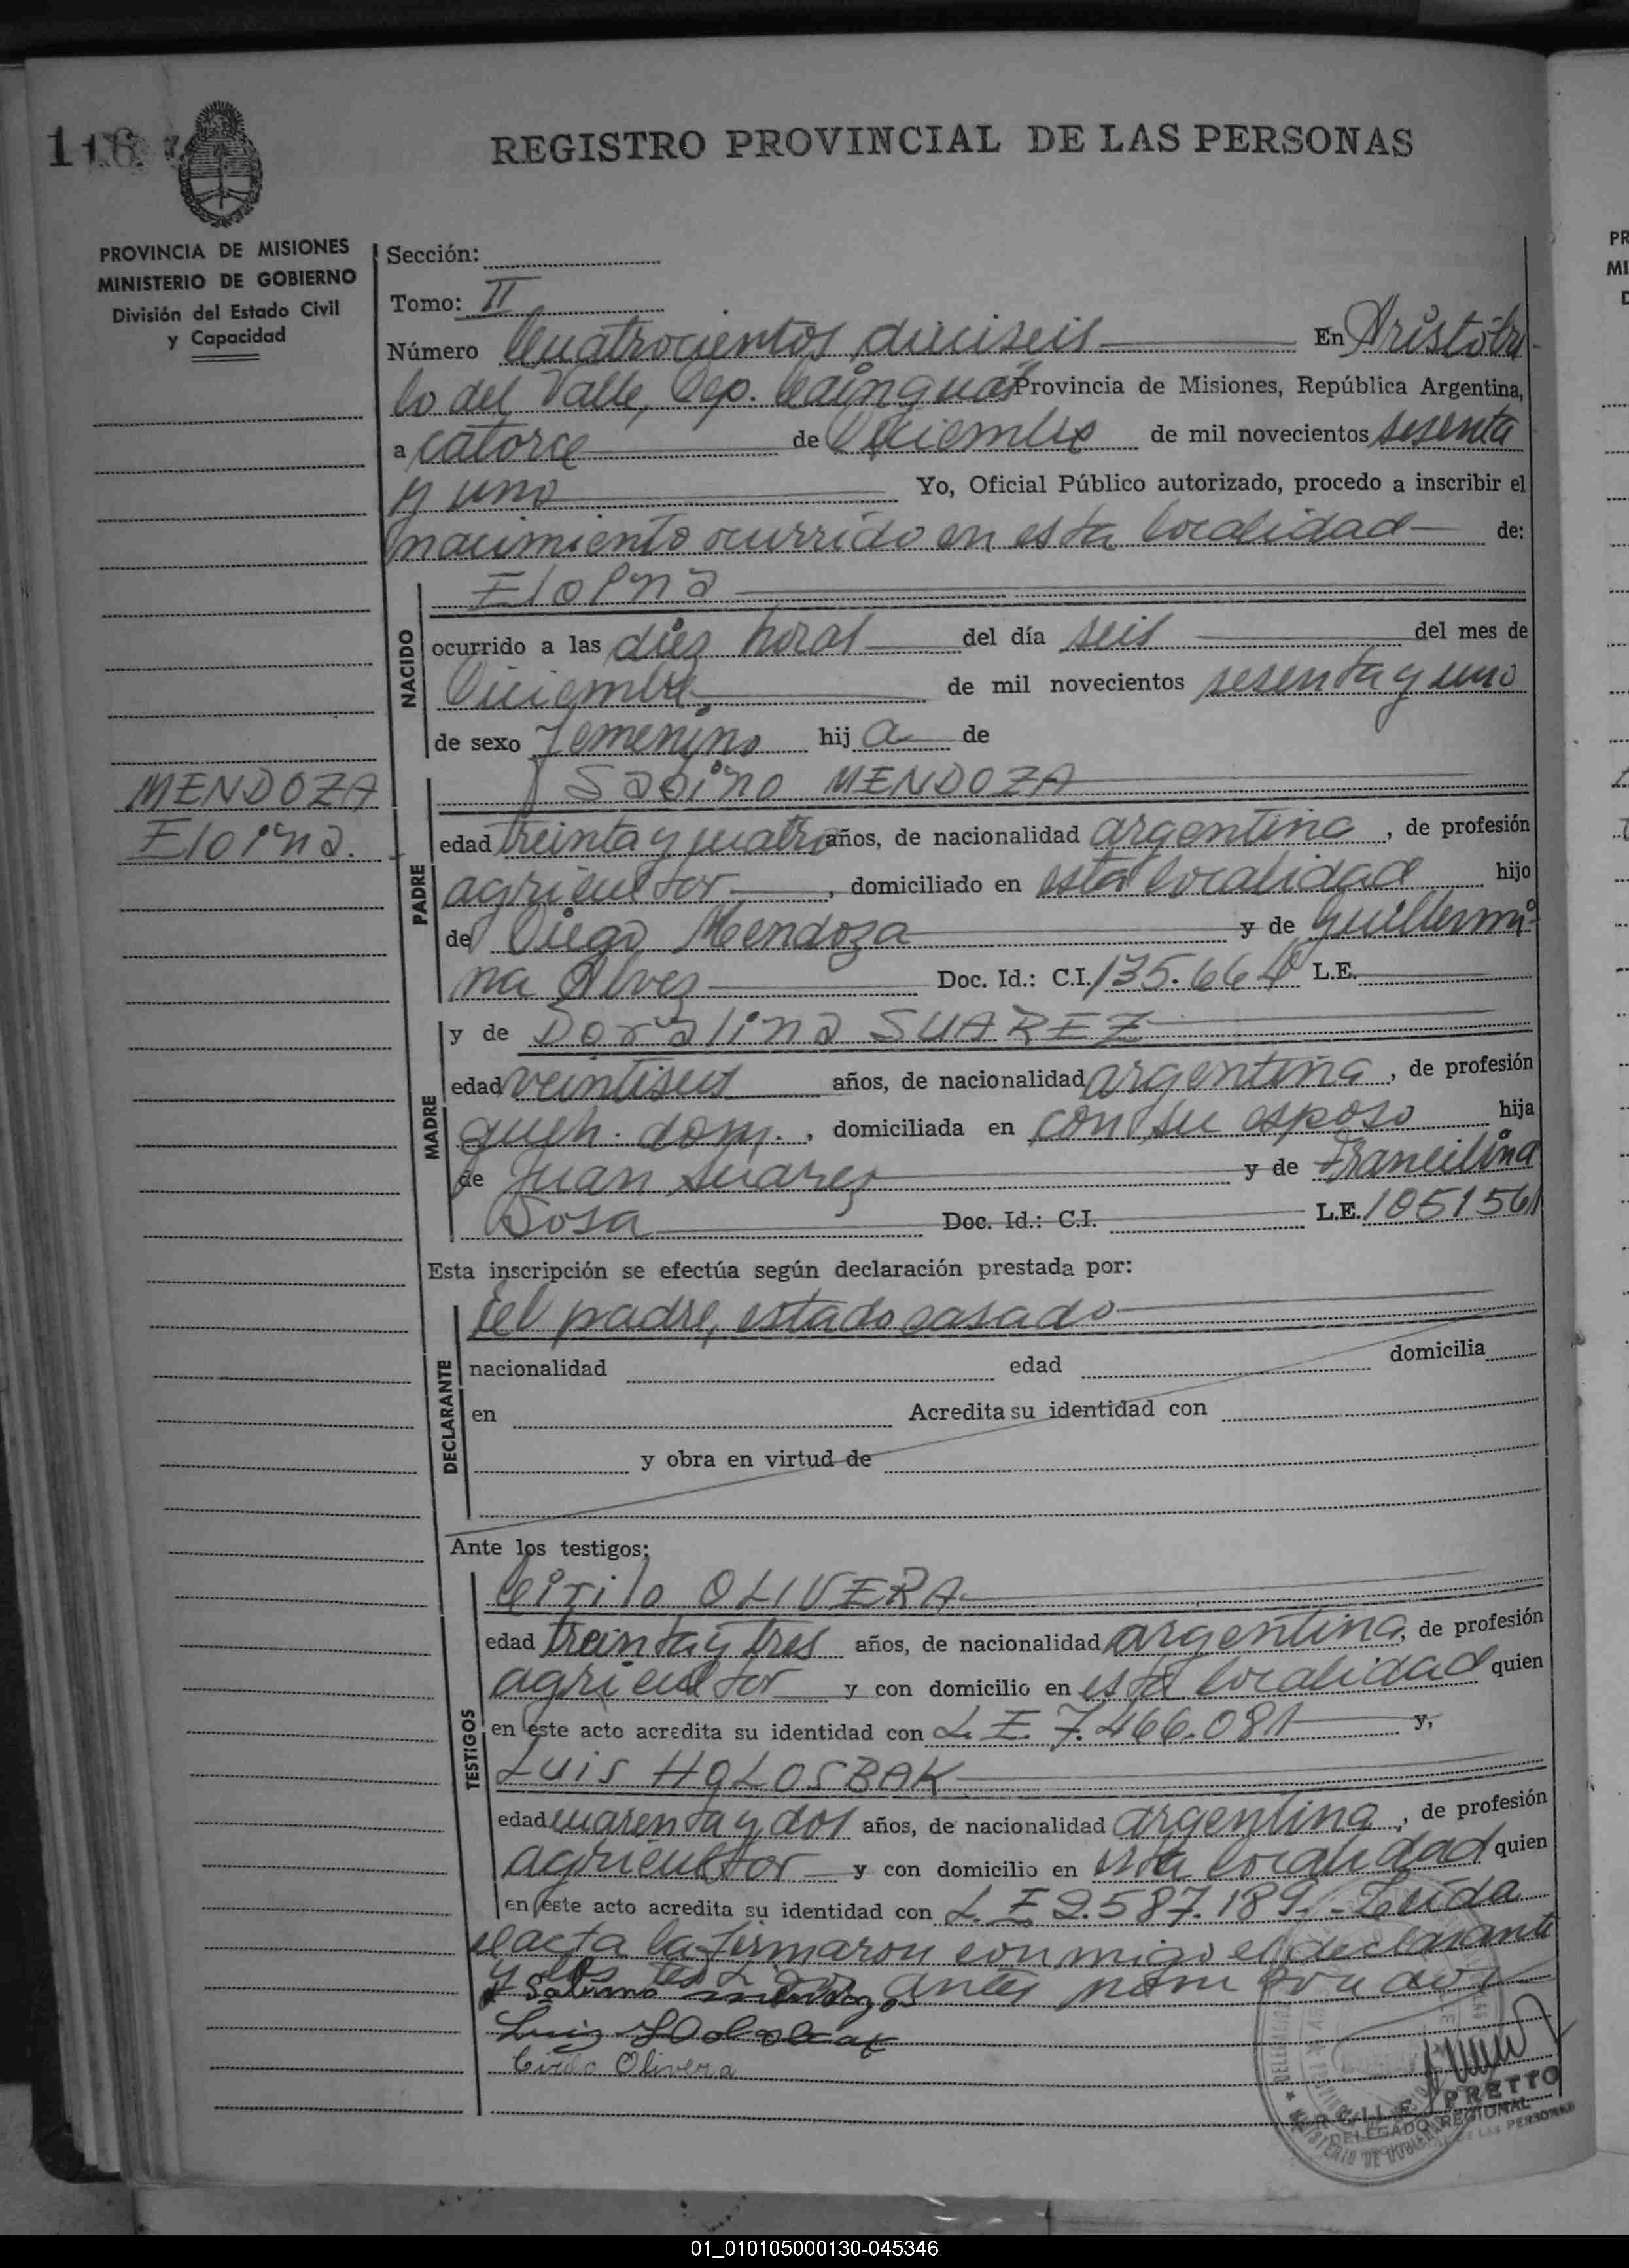 REGISTRO PROVINCIAL DE LAS PERSONAS
PROVINCIA DE MISIONES
MINISTERIO DE GOBIERNO
División del Estado Civil
y Capacidad
Sección:
Tomo: II
Número Cuatrocientos dieciseis En Aristóbu-
lo del Valle, Dep. Cainguás Provincia de Misiones, República Argentina,
a catorce de Diciembre de mil novecientos sesenta
y uno Yo, Oficial Público autorizado, procedo a inscribir el
nacimiento ocurrido en esta localidad de:
NACIDO
Eloina
ocurrido a las diez horas del día seis del mes de
Diciembre de mil novecientos sesenta y uno
de sexo femenino hij a de
MENDOZA
Eloina.
PADRE
Sabino MENDOZA
edad treinta y cuatro años, de nacionalidad argentino, de profesión
agricultor, domiciliado en esta localidad hijo
de Diego Mendoza y de Guillermi
na Alvez Doc. Id.: C.I. 135.664 L.E.
MADRE
y de Doralina SUAREZ
edad veintiseis años, de nacionalidad argentina, de profesión
queh. dom., domiciliada en con su esposo hija
de Juan Suarez y de Francilina
Sosa Doc. Id.: C.I. L.E. 1851561
Esta inscripción se efectúa según declaración prestada por:
DECLARANTE
el padre, estado casado
nacionalidad edad domicilia
en Acredita su identidad con
y obra en virtud de
Ante los testigos:
TESTIGOS
Cirilo OLIVERA
edad treinta y tres años, de nacionalidad argentina, de profesión
agricultor y con domicilio en esta localidad quien
en este acto acredita su identidad con L.E. 7.466.081 y,
Luis HOLOSBAK
edad cuarenta y dos años, de nacionalidad argentina, de profesión
agricultor y con domicilio en esta localidad quien
en este acto acredita su identidad con L.E 2.587.189.- Leida
el acta la firmaron conmigo el declarante
y los testigos antes nombrados
Sabino Mendoza
Luis
Cirilo Olivera
PRETTO
DELEGADO REGIONAL
01_010105000130-045346